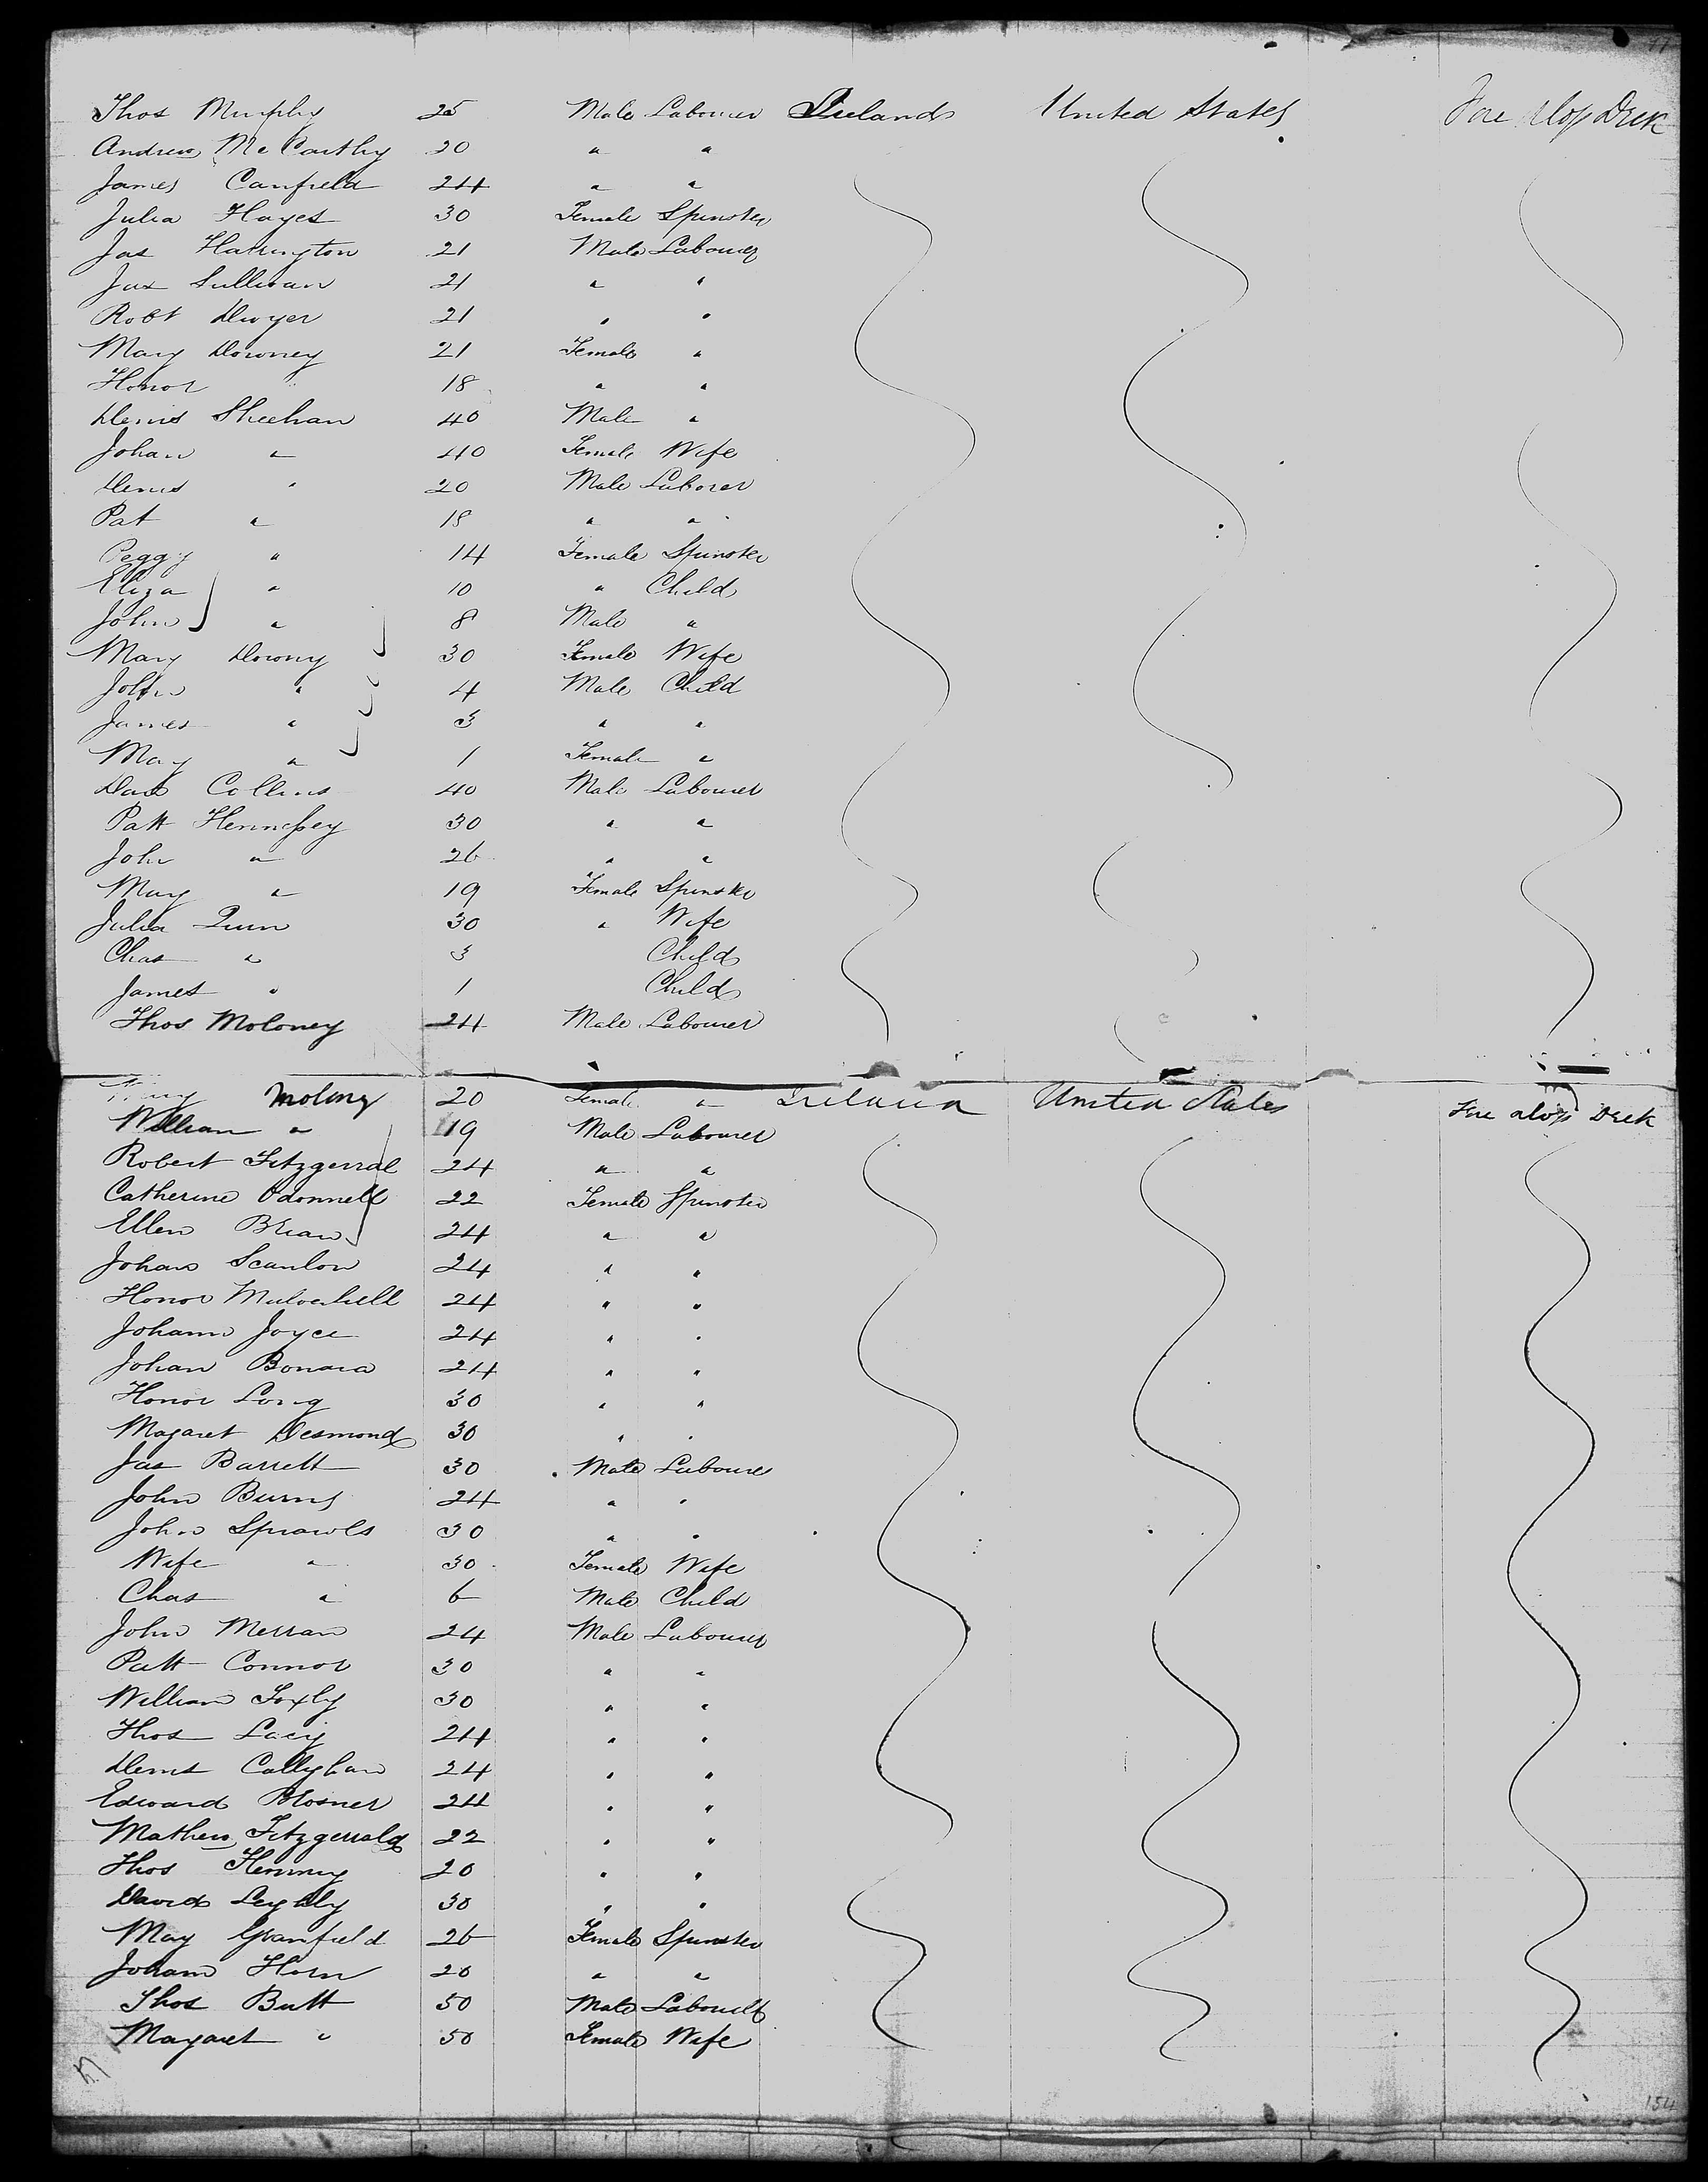 Thos Murphy 25 Male Labourer Ireland United States Fore Orlop Deck
Andrew McCarthy 20 " "
James Canfield 24 " "
Julia Hayes 30 Female Spinster
Jas Harrington 21 Male Labourer
Jas Sullivan 21 " "
Robt Dwyer 21 " "
Mary Downey 21 Female "
Honor " 18 " "
Denis Sheehan 40 Male "
Johan " 40 Female Wife
Denis " 20 Male Laborer
Pat " 18 " "
Peggy " 14 Female Spinster
Eliza " 10 " Child
John " 8 Male "
Mary Downy 30 Female Wife
John " 4 Male Child
James " 3 " "
May " 1 Female "
Dad Collins 40 Male Labourer
Patt Hennessey 30 " "
John " 26 " "
Mary " 19 Female Spinster
Julia Quin 30 " Wife
Chas " 3 Child
James " 1 Child
Thos Moloney 24 Male Labourer
Molony 20 Female " Ireland United States Fore Orlop Deck
William " 19 Male Labourer
Robert Fitzgerral 24 " "
Catherine Odonnell 22 Female Spinster
Ellen Brian 24 " "
Johan Scanlon 24 " "
Honor Mulvehill 24 " "
Johann Joyce 24 " "
Johan Bonara 24 " "
Honor Long 30 " "
Magaret Desmond 30 " "
Jas Barrett 30 Male Labourer
John Burns 24 " "
John Sprawls 30 " "
Wife " 30 Female Wife
Chas " 6 Male Child
John Merran 24 Male Labourer
Patt Connor 30 " "
William Foxly 30 " "
Thos Lacy 24 " "
Denis Callyhan 24 " "
Edward 24 " "
Mathew Fitzgerrald 22 " "
Thos 20 " "
David 30 " "
May Granfield 26 Female Spinster
Johann Horn 20 " "
Thos Butt 50 Male Labourer
Margaret " 50 Female Wife
154